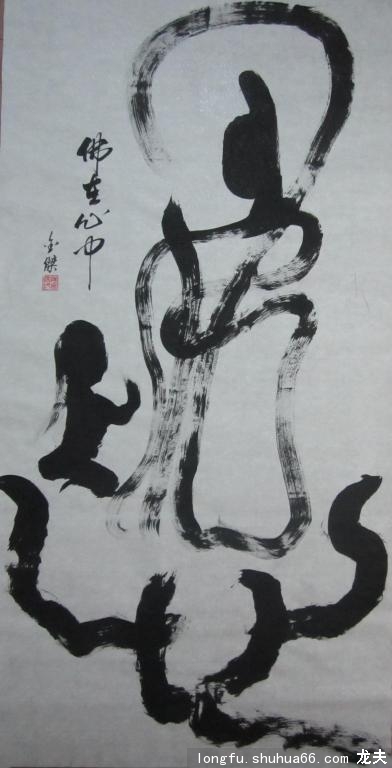 佛在心中
金燦
longfu.shuhua66.com 龙夫